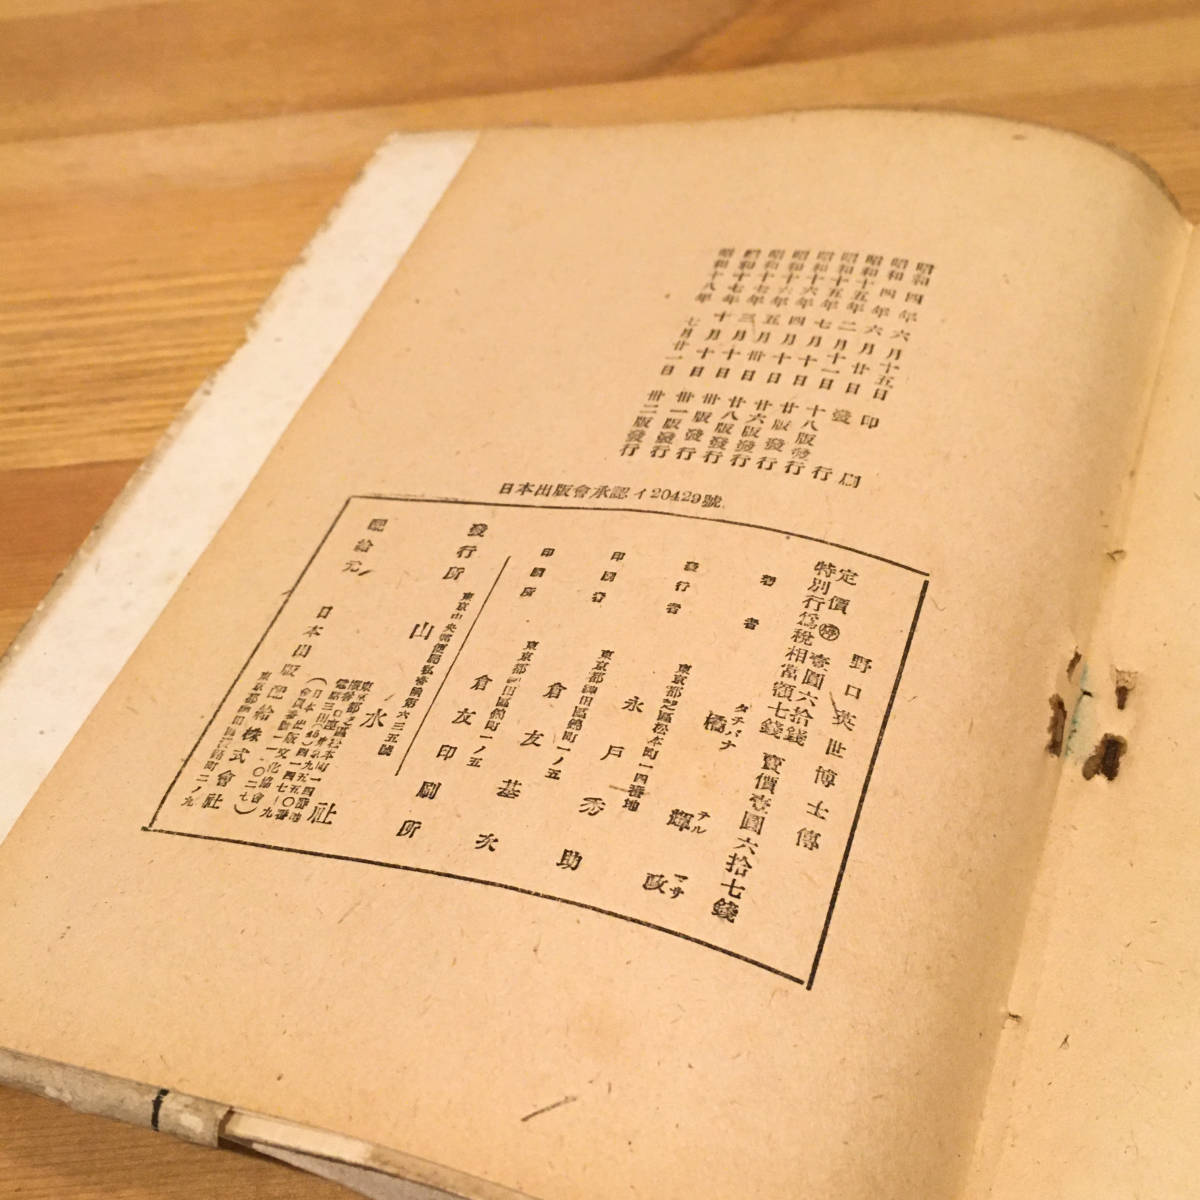 昭和四年六月十五日印刷
昭和四年六月廿日發行
昭和十五年二月十一日十八版發行
昭和十五年七月十日廿版發行
昭和十六年四月十日廿六版發行
昭和十六年五月廿日廿八版發行
昭和十七年三月十日卅版發行
昭和十七年十月十日卅一版發行
昭和十八年七月廿一日卅二版發行
日本出版會承認イ20429號
野口英世博士傳
定價㊕壹圓六拾錢
特別行爲稅相當額七錢 賣價壹圓六拾七錢
著者 橘輝政
タチバナ テルマサ
發行者 東京都芝區松本町一四番地
永戸秀助
印刷者 東京都神田區鍋町一ノ五
倉友基次
印刷所 東京都神田區鍋町一ノ五
倉友印刷所
東京中央郵便局私書凾第六三五號
發行所 山水社
東京都芝區松本町一四番地
配給元 日本出版配給株式會社